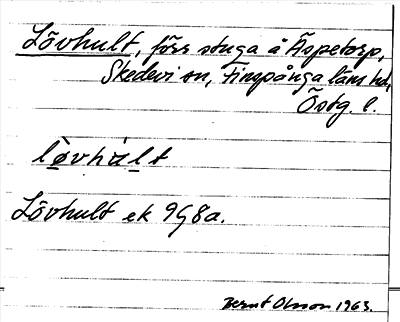 Lövhult, förr stuga å Äspetorp,
Skedevi sn, Finspånga läns hd,
Östg. l.
lø̀vhúlt
Lövhult ek 9G8a.
Bernt Olsson 1963.